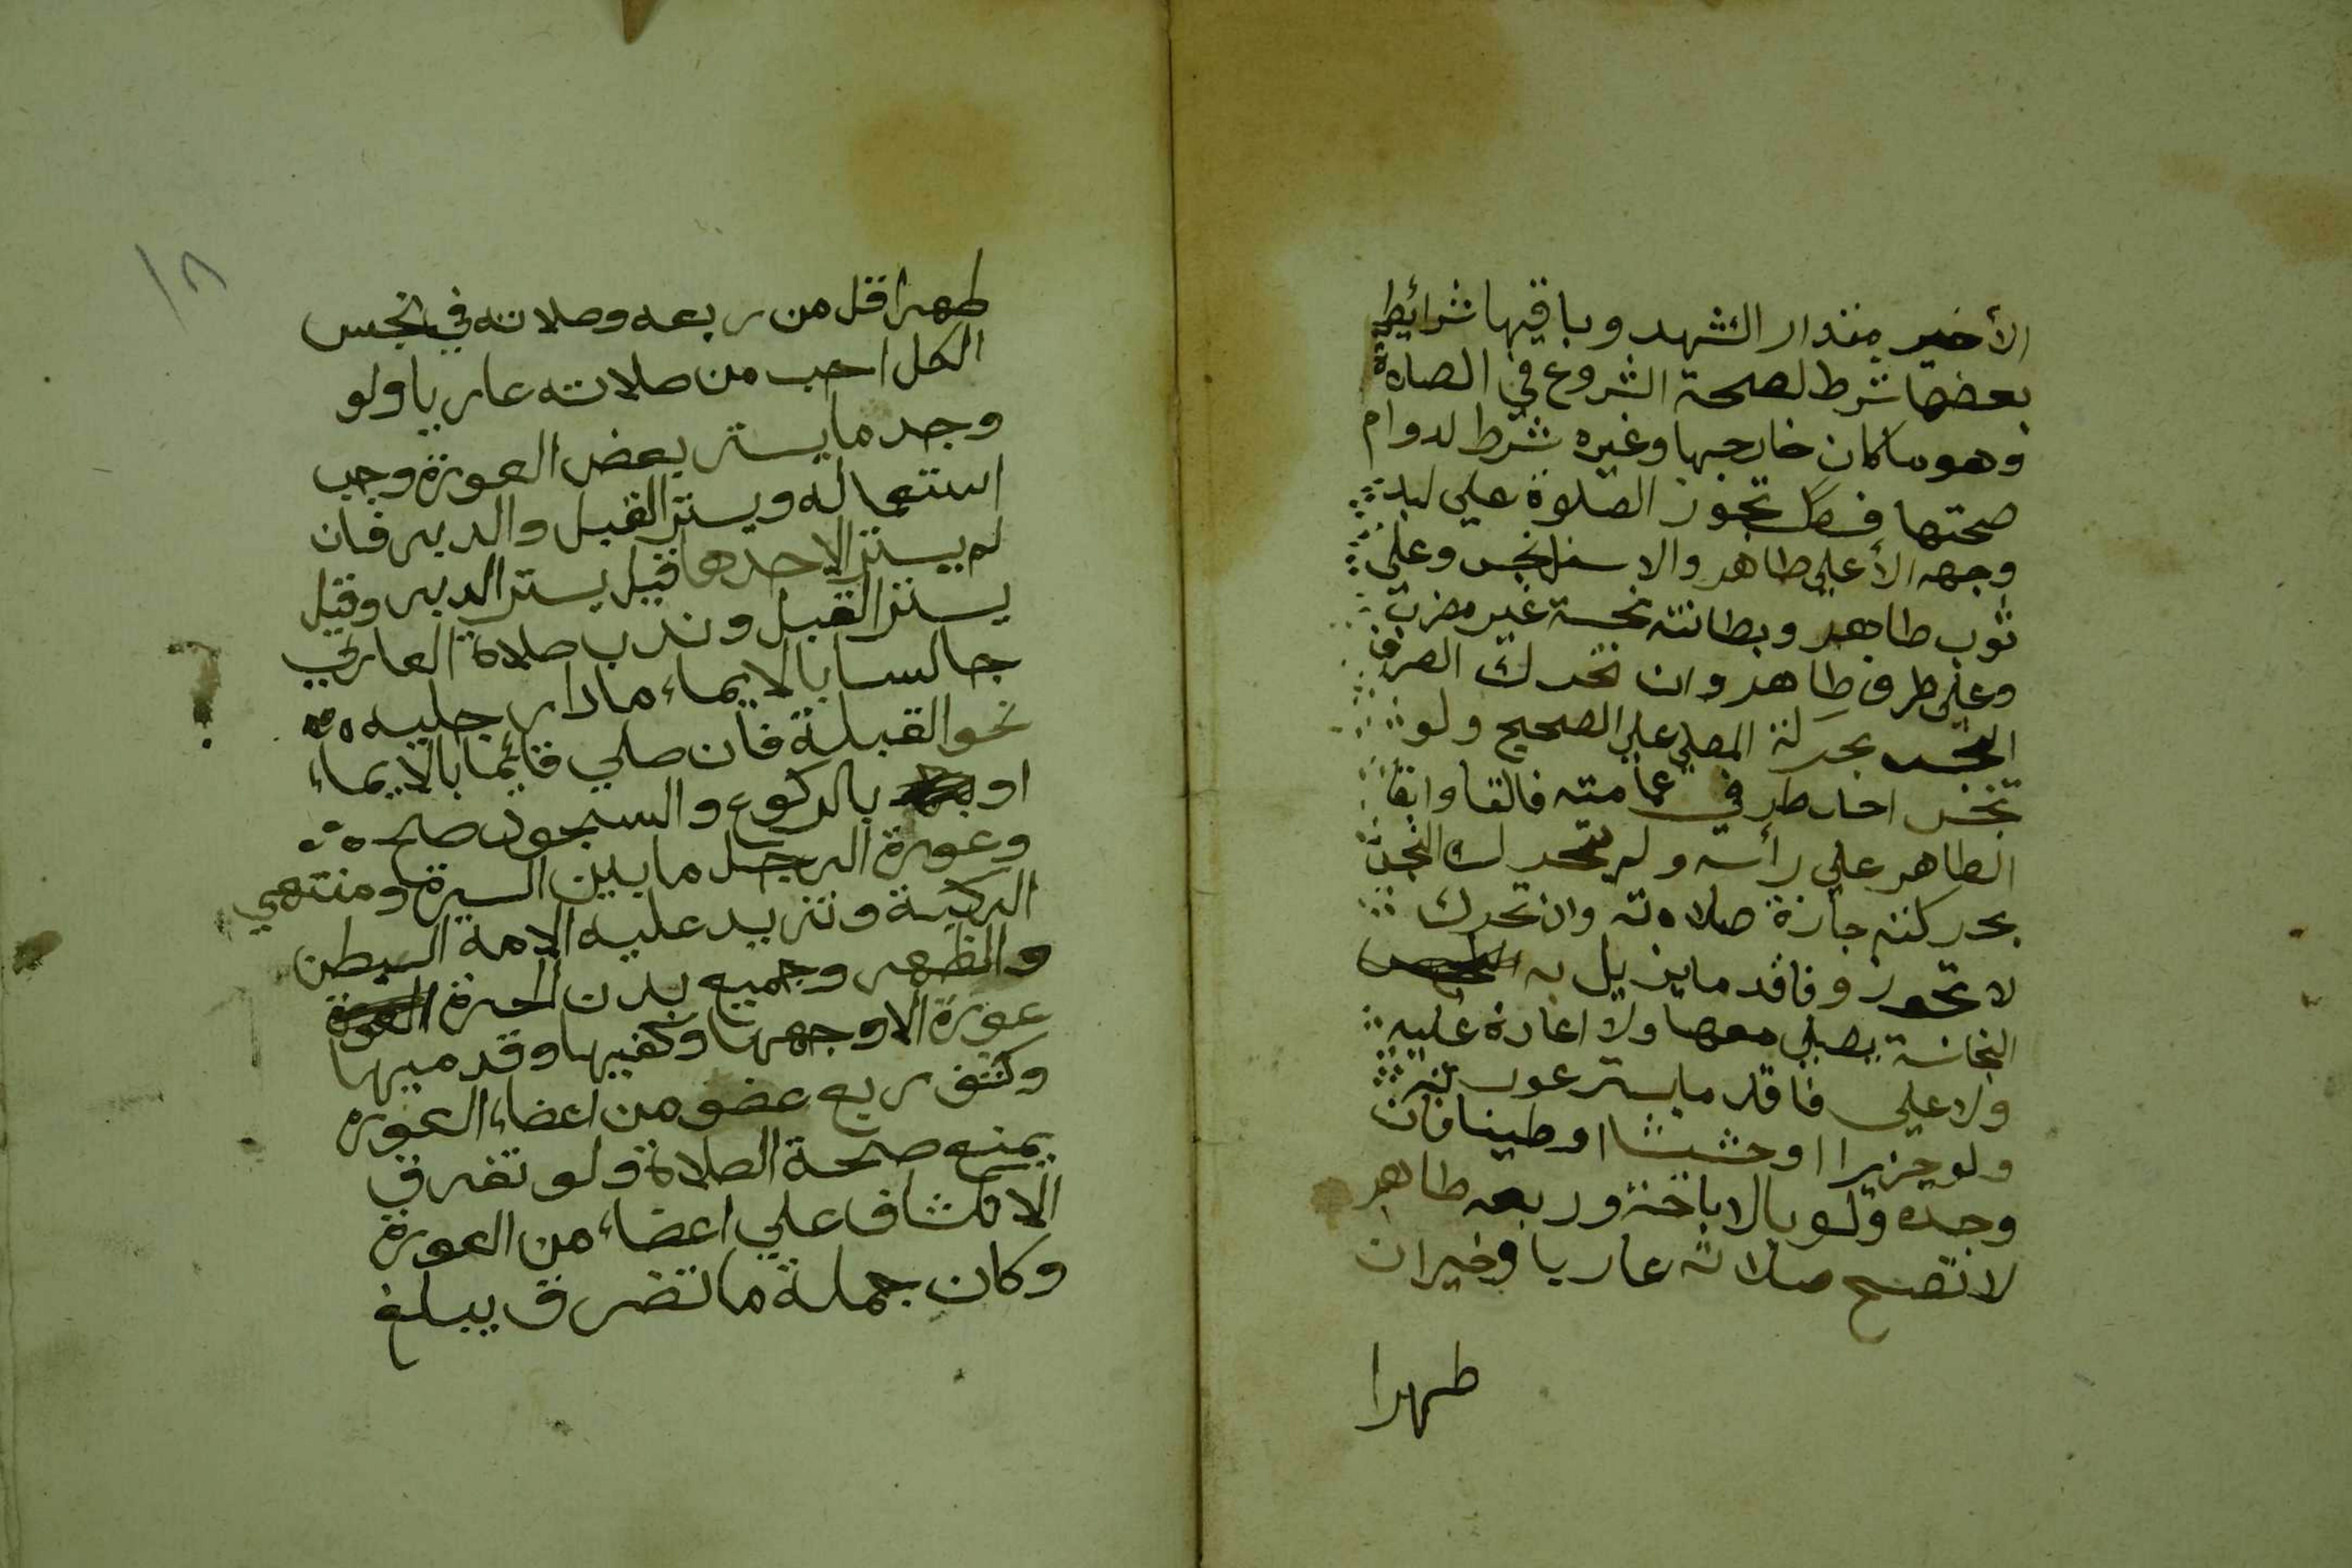 الأخير مقدار التشهد وباقيها شرائط
بعضها شرط لصحة الشروع في الصلاة
وهو ما كان خارجها وغيره شرط لدوام
صحتها فصل تجوز الصلوة علي لبد
وجهه الأعلي طاهر والاسفل نجس وعلي
ثوب طاهر وبطانته نجسة غير مضرب
وعلي طرف طاهر وان تحرك الطرف
النجس بحركة المصلي علي الصحيح ولو
تنجس احد طرفي عمامته فالقا وابقا
الطاهر علي رأسه ولم يتحرك النجس
بحركته جازة صلاته وان تحرك
لا تجوز وفاقد ما يزيل به
النجاسة يصلي معها ولا اعادة عليه
ولا علي فاقد ما يستر عورته
ولو حريرا او حشيشا او طينا فان
وجده ولو بالاباحة وربعه طاهر
لا تصح صلاته عاريا وخير ان
طهرا
١٨
طهر اقل من ربعه وصلاته في نجس
الكل احب من صلاته عاريا ولو
وجد ما يستر بعض العورة وجب
استعماله ويستر القبل والدبر فان
لم يستر الا احدهما قيل يستر الدبر وقيل
يستر القبل وندب صلاة العاري
جالسا بالايماء مادا رجليه
نحو القبلة فان صلي قائما بالايماء
او بالركوع والسجود صح
وعورة الرجل ما بين السرة ومنتهي
الركبة وتزيد عليه الامة البطن
والظهر وجميع بدن الحرة
عورة الا وجهها وكفيها وقدميها
وكشف ربع عضو من اعضاء العورة
يمنع صحة الصلاة ولو تفرق
الانكشاف علي اعضاء من العورة
وكان جملة ما تفرق يبلغ